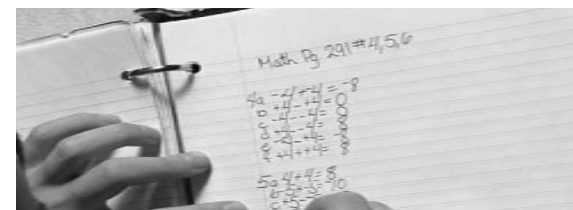 Math Pg 291 #4,5,6
4a -4+-4=-8
b +4-+4=0
c -4--4=0
d +4--4=8
e -4-+4=-8
f +4++4=8
5a 4+4=8